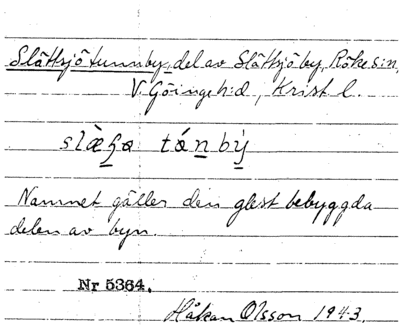 Slättsjö tunnby, del av Slättsjö by, Röke s:n,
V. Göinge h:d, Krist. l.
slæ̀ꜧa tǽnbý
Namnet gäller den glest bebyggda
delen av byn.
Nr 5364.
Håkan Olsson 1943.